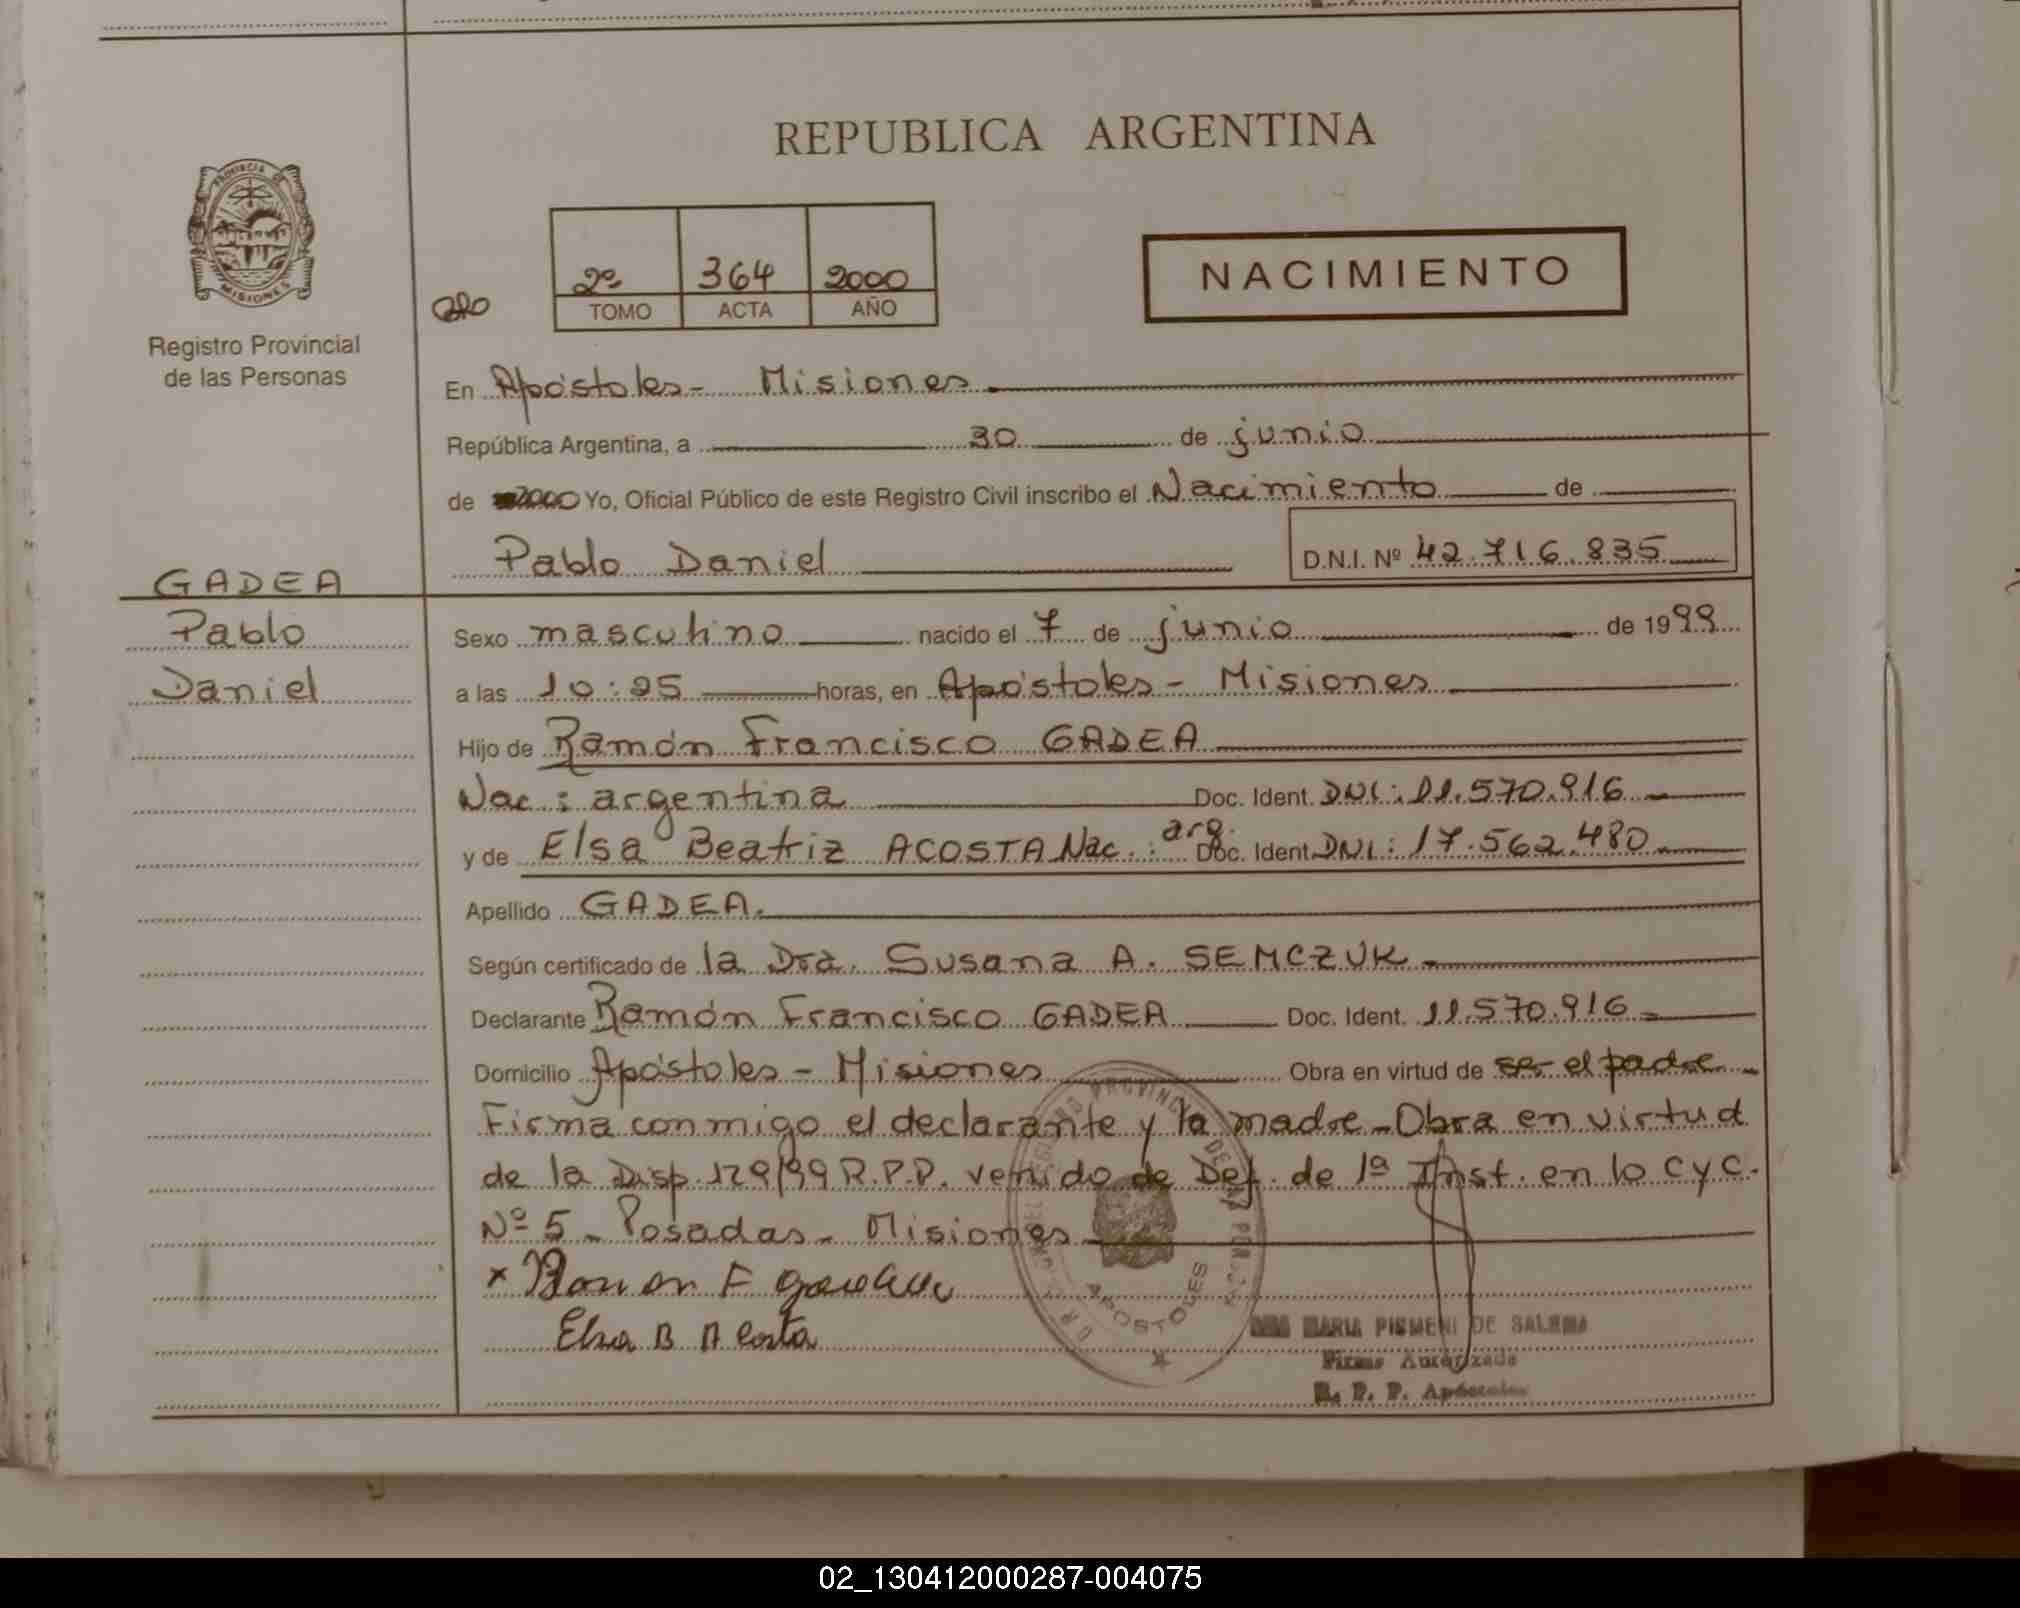 REPUBLICA ARGENTINA
PROVINCIA DE
MISIONES
Registro Provincial
de las Personas
2º 364 2000
TOMO ACTA AÑO
NACIMIENTO
En Apóstoles - Misiones
República Argentina, a 30 de junio
de 2000 Yo, Oficial Público de este Registro Civil inscribo el Nacimiento de
Pablo Daniel D.N.I. Nº 42.716.835
GADEA
Pablo
Daniel
Sexo masculino nacido el 7 de junio de 1999
a las 10:25 horas, en Apóstoles - Misiones
Hijo de Ramón Francisco GADEA
Nac: argentina Doc. Ident. DNI: 11.570.916
y de Elsa Beatriz ACOSTA Nac.: arg. Doc. Ident. DNI: 17.562.480
Apellido GADEA.
Según certificado de la Dra. Susana A. SEMCZUK
Declarante Ramón Francisco GADEA Doc. Ident. 11.570.916
Domicilio Apóstoles - Misiones Obra en virtud de ser el padre
Firma conmigo el declarante y la madre - Obra en virtud
de la Disp. 129/99 R.P.P. venido de Def. de 1ª Inst. en lo CyC.
Nº 5 - Posadas - Misiones
x Ramon F
Elsa B Acosta
APOSTOLES
MARIA PISMENI DE SALEMA
Firma Autorizada
R. P. P. Apóstoles
02_130412000287-004075